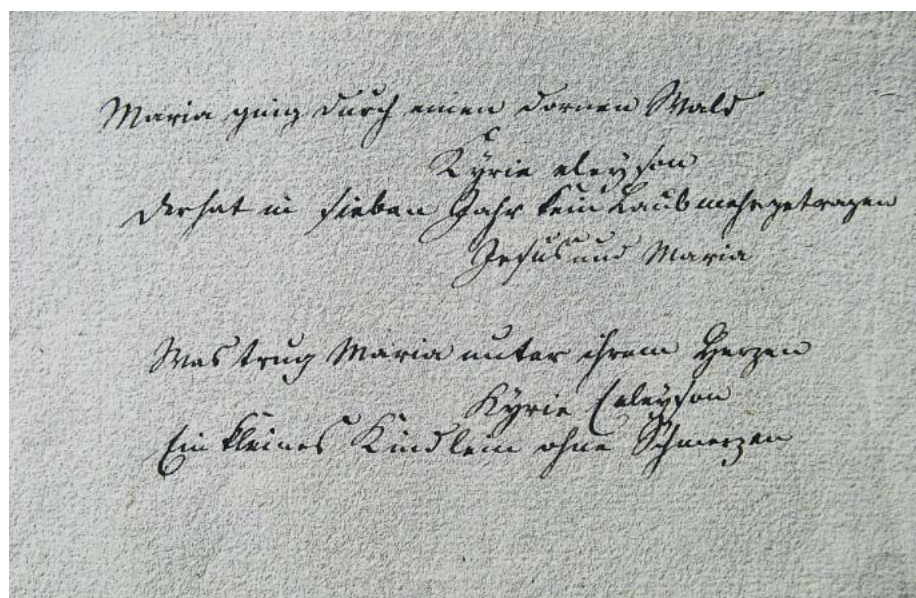 Maria ging durch einen dornen Wald
Kyrie eleyson
der hat in sieben Jahr kein Laub mehr getragen
Jesus und Maria
Was trug Maria unter ihrem Herzen
Kyrie eeleyson
Ein kleines Kindlein ohne Schmerzen